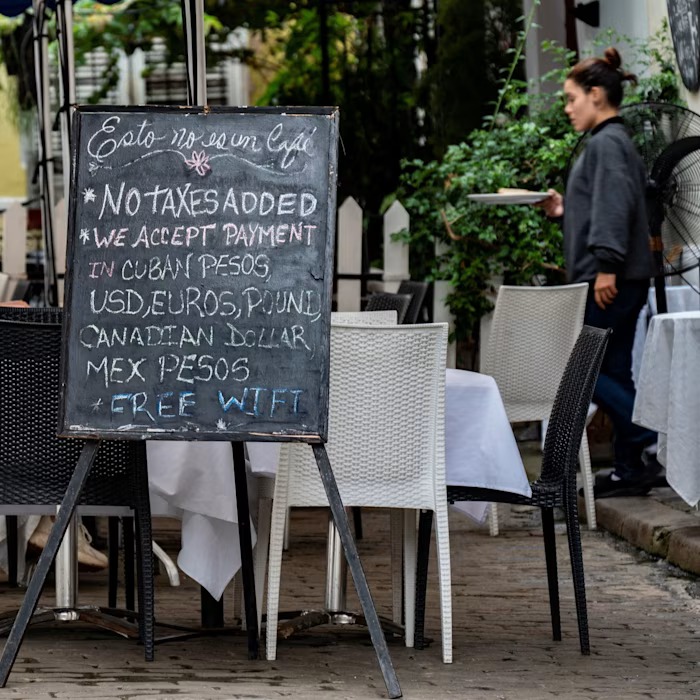 Esto no es un Café
* NO TAXES ADDED
* WE ACCEPT PAYMENT
IN CUBAN PESOS,
USD, EUROS, POUND,
CANADIAN DOLLAR,
MEX PESOS
* FREE WIFI